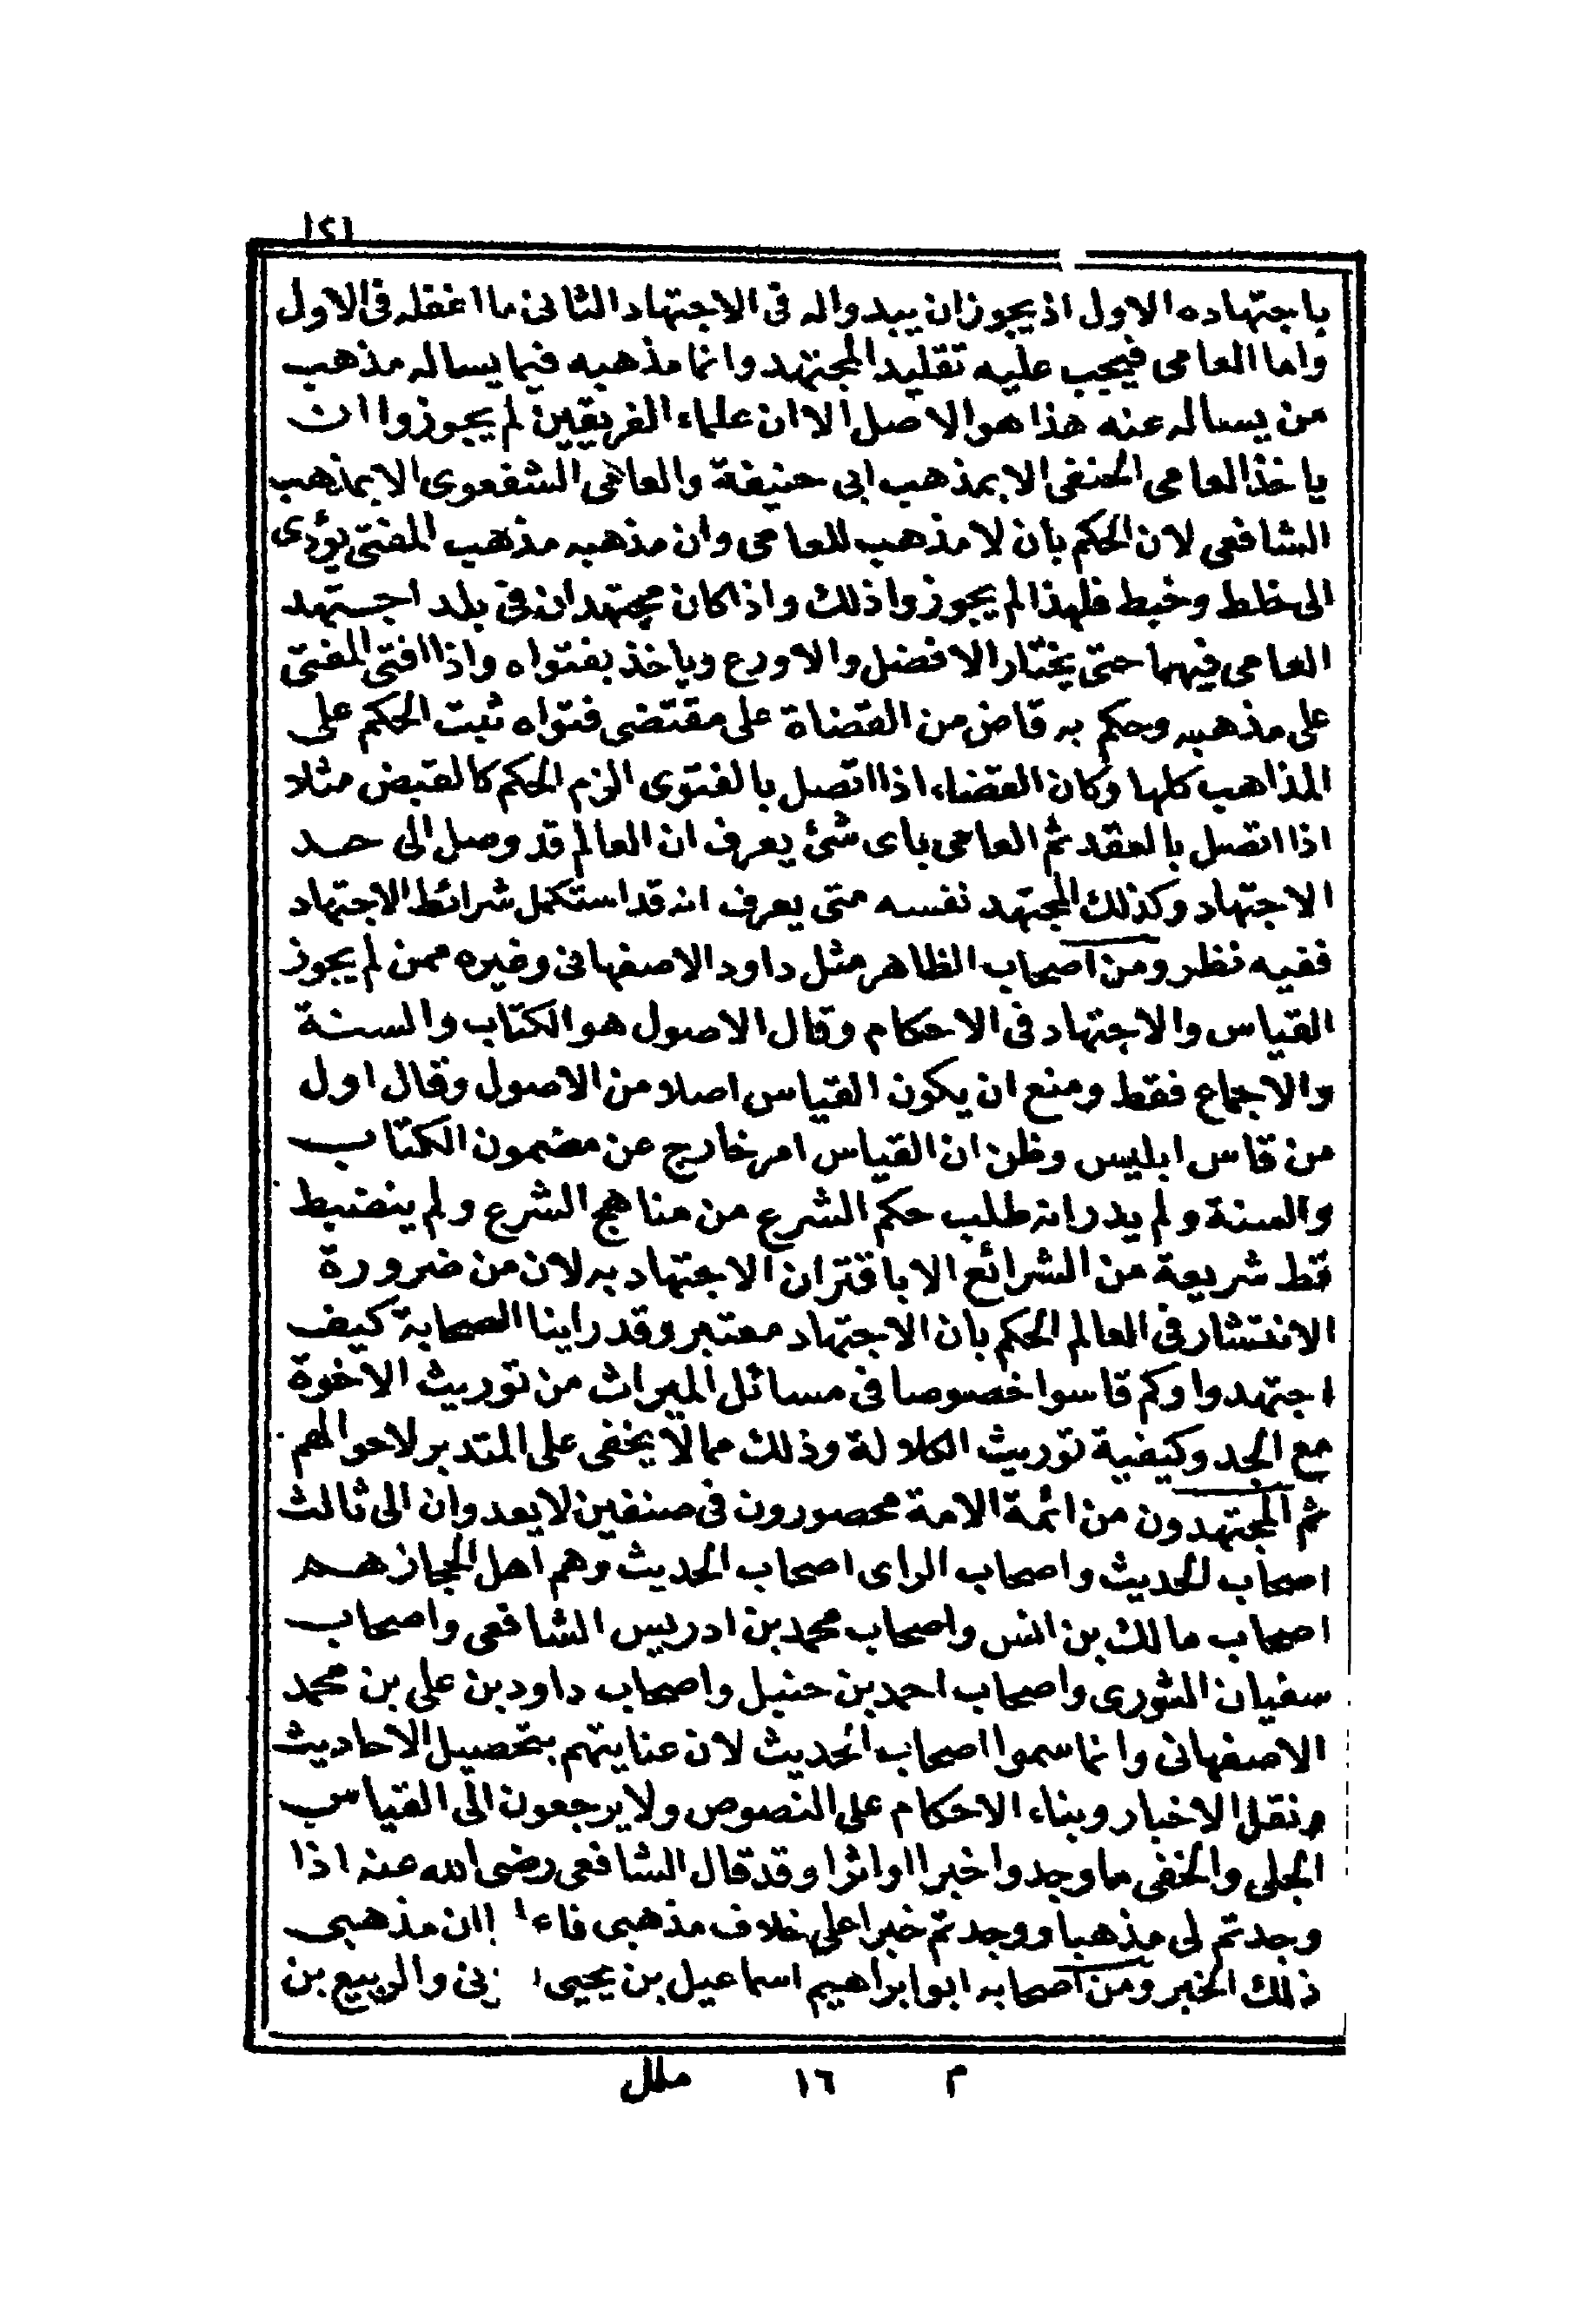 ١٢١
باجتهاده الاول اذ يجوز ان يبدو اله فى الاجتهاد الثانى ما اغفله فى الاول
واما العامى فيجب عليه تقليد المجتهد وانما مذهبه فيما يساله مذهب
من يساله عنه هذا هو الاصل الا ان علماء الفريقين لم يجوزوا ان
ياخذ العامى الحنفى الا بمذهب ابى حنيفة والعامى الشفعوى الا بمذهب
الشافعى لان الحكم بان لا مذهب للعامى وان مذهبه مذهب المفتى يؤدى
الى خلط وخبط فلهذا لم يجوزوا ذلك واذا كان مجتهدان فى بلد اجتهد
العامى فيهما حتى يختار الافضل والاورع وياخذ بفتواه واذا افتى المفتى
على مذهبه وحكم به قاض من القضاة على مقتضى فتواه ثبت الحكم على
المذاهب كلها وكان القضاء اذا اتصل بالفتوى الزم الحكم كالقبض مثلا
اذا اتصل بالعقد ثم العامى باى شئ يعرف ان العالم قد وصل الى حد
الاجتهاد وكذلك المجتهد نفسه متى يعرف انه قد استكمل شرائط الاجتهاد
ففيه نظر ومن اصحاب الظاهر مثل داود الاصفهانى وغيره ممن لم يجوز
القياس والاجتهاد فى الاحكام وقال الاصول هو الكتاب والسنة
والاجماع فقط ومنع ان يكون القياس اصلا من الاصول وقال اول
من قاس ابليس وظن ان القياس امر خارج عن مضمون الكتاب
والسنة ولم يدر انه طلب حكم الشرع من مناهج الشرع ولم ينضبط
قط شريعة من الشرائع الا باقتران الاجتهاد به لان من ضرورة
الانتشار فى العالم الحكم بان الاجتهاد معتبر وقد راينا الصحابة كيف
اجتهدوا وكم قاسوا خصوصا فى مسائل الميراث من توريث الاخوة
مع الجد وكيفية توريث الكلالة وذلك مما لا يخفى على المتدبر لاحوالهم
ثم المجتهدون من ائمة الامة محصورون فى صنفين لا يعدوان الى ثالث
اصحاب الحديث واصحاب الراى اصحاب الحديث وهم اهل الحجاز هم
اصحاب مالك بن انس واصحاب محمد بن ادريس الشافعى واصحاب
سفيان الثورى واصحاب احمد بن حنبل واصحاب داود بن على بن محمد
الاصفهانى وانما سموا اصحاب الحديث لان عنايتهم بتحصيل الاحاديث
ونقل الاخبار وبناء الاحكام على النصوص ولا يرجعون الى القياس
الجلى والخفى ما وجدوا خبرا او اثرا وقد قال الشافعى رضى الله عنه اذا
وجدتم لى مذهبا ووجدتم خبرا على خلاف مذهبى ان مذهبى
ذلك الخبر ومن اصحابه ابو ابراهيم اسماعيل بن يحيى والربيع بن
م ١٦ ملل